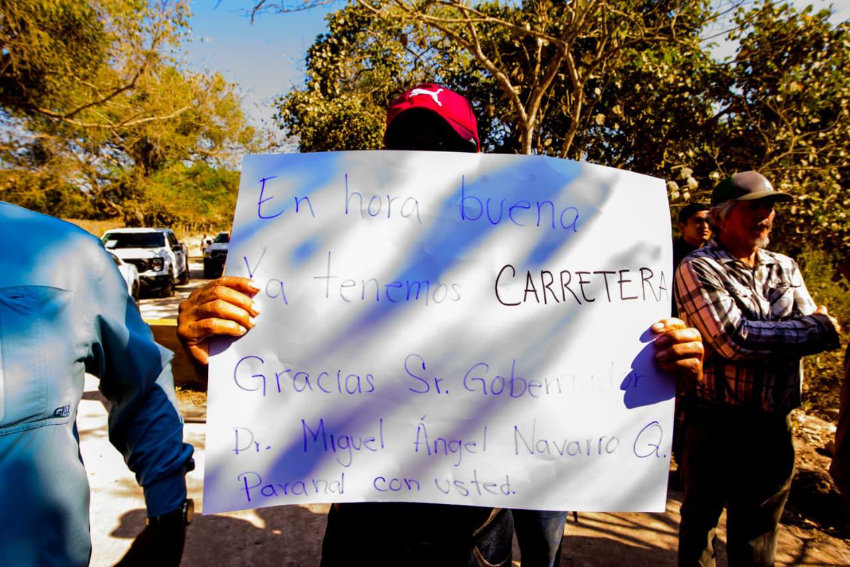 En hora buena
Ya tenemos CARRETERA
Gracias Sr. Gobernador
Dr. Miguel Ángel Navarro Q.
Paranal con usted.